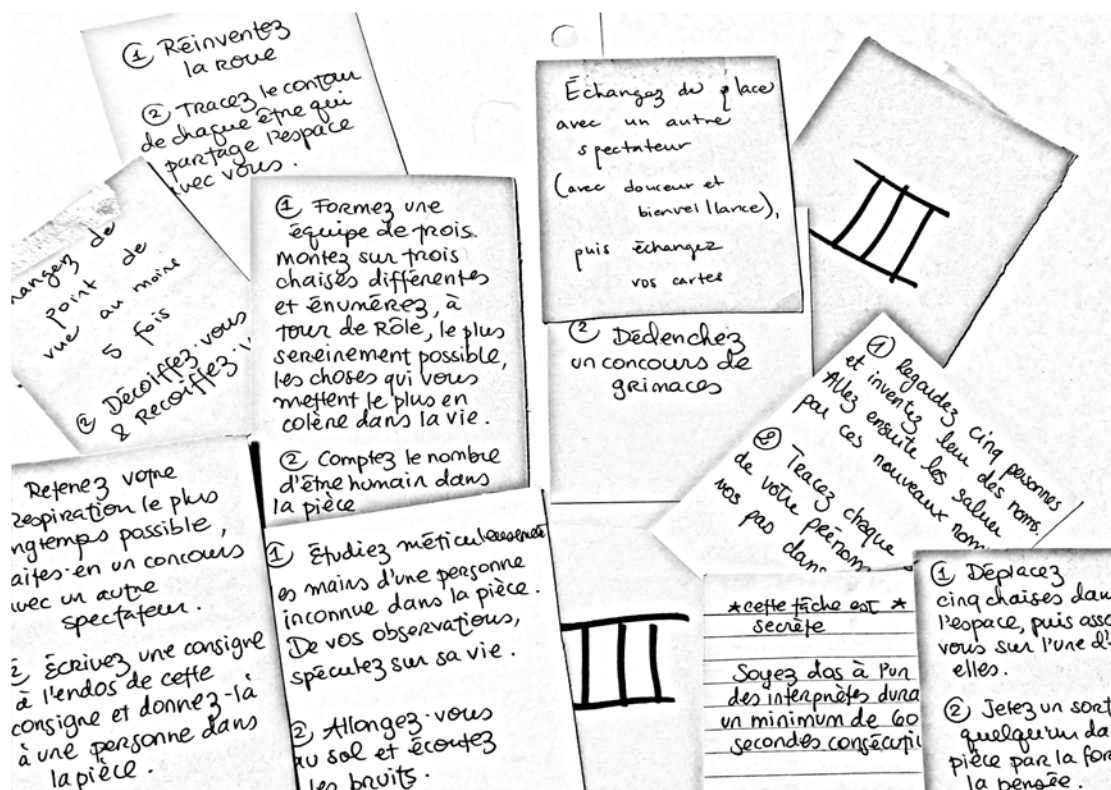 ① Réinventez
la roue
② Tracez le contour
de chaque être qui
partage l'espace
avec vous.
point de
vue au moins
5 fois
② Décoiffez-vous
& Recoiffez
① Formez une
équipe de trois.
montez sur trois
chaises différentes
et énumérez, à
tour de Rôle, le plus
sereinement possible,
les choses qui vous
mettent le plus en
colère dans la vie.
② Comptez le nombre
d'être humain dans
la pièce
Échangez de place
avec un autre
spectateur
(avec douceur et
bienvellance),
puis échangez
vos cartes
② Déclenchez
un concours de
grimaces
① Regardez cinq personnes
et inventez leur des noms.
Allez ensuite les saluer
par ces nouveaux nom
② Tracez chaque
de votre prénom
vos pas dans
Retenez votre
Respiration le plus
ngtemps possible,
aites-en un concours
avec un autre
spectateur.
② Écrivez une consigne
à l'endos de cette
consigne et donnez-là
à une personne dans
la pièce.
① Étudiez méticuleusement
es mains d'une personne
inconnue dans la pièce.
De vos observations,
spéculez sur sa vie.
② Allongez-vous
au sol et écoutez
les bruits.
*cette tâche est *
secrète
Soyez dos à l'un
des interprètes dura
un minimum de 60
secondes consécuti
① Déplacez
cinq chaises dans
l'espace, puis asso
vous sur l'une d'
elles.
② Jetez un sort
quelqu'un da
pièce par la for
la pensée.